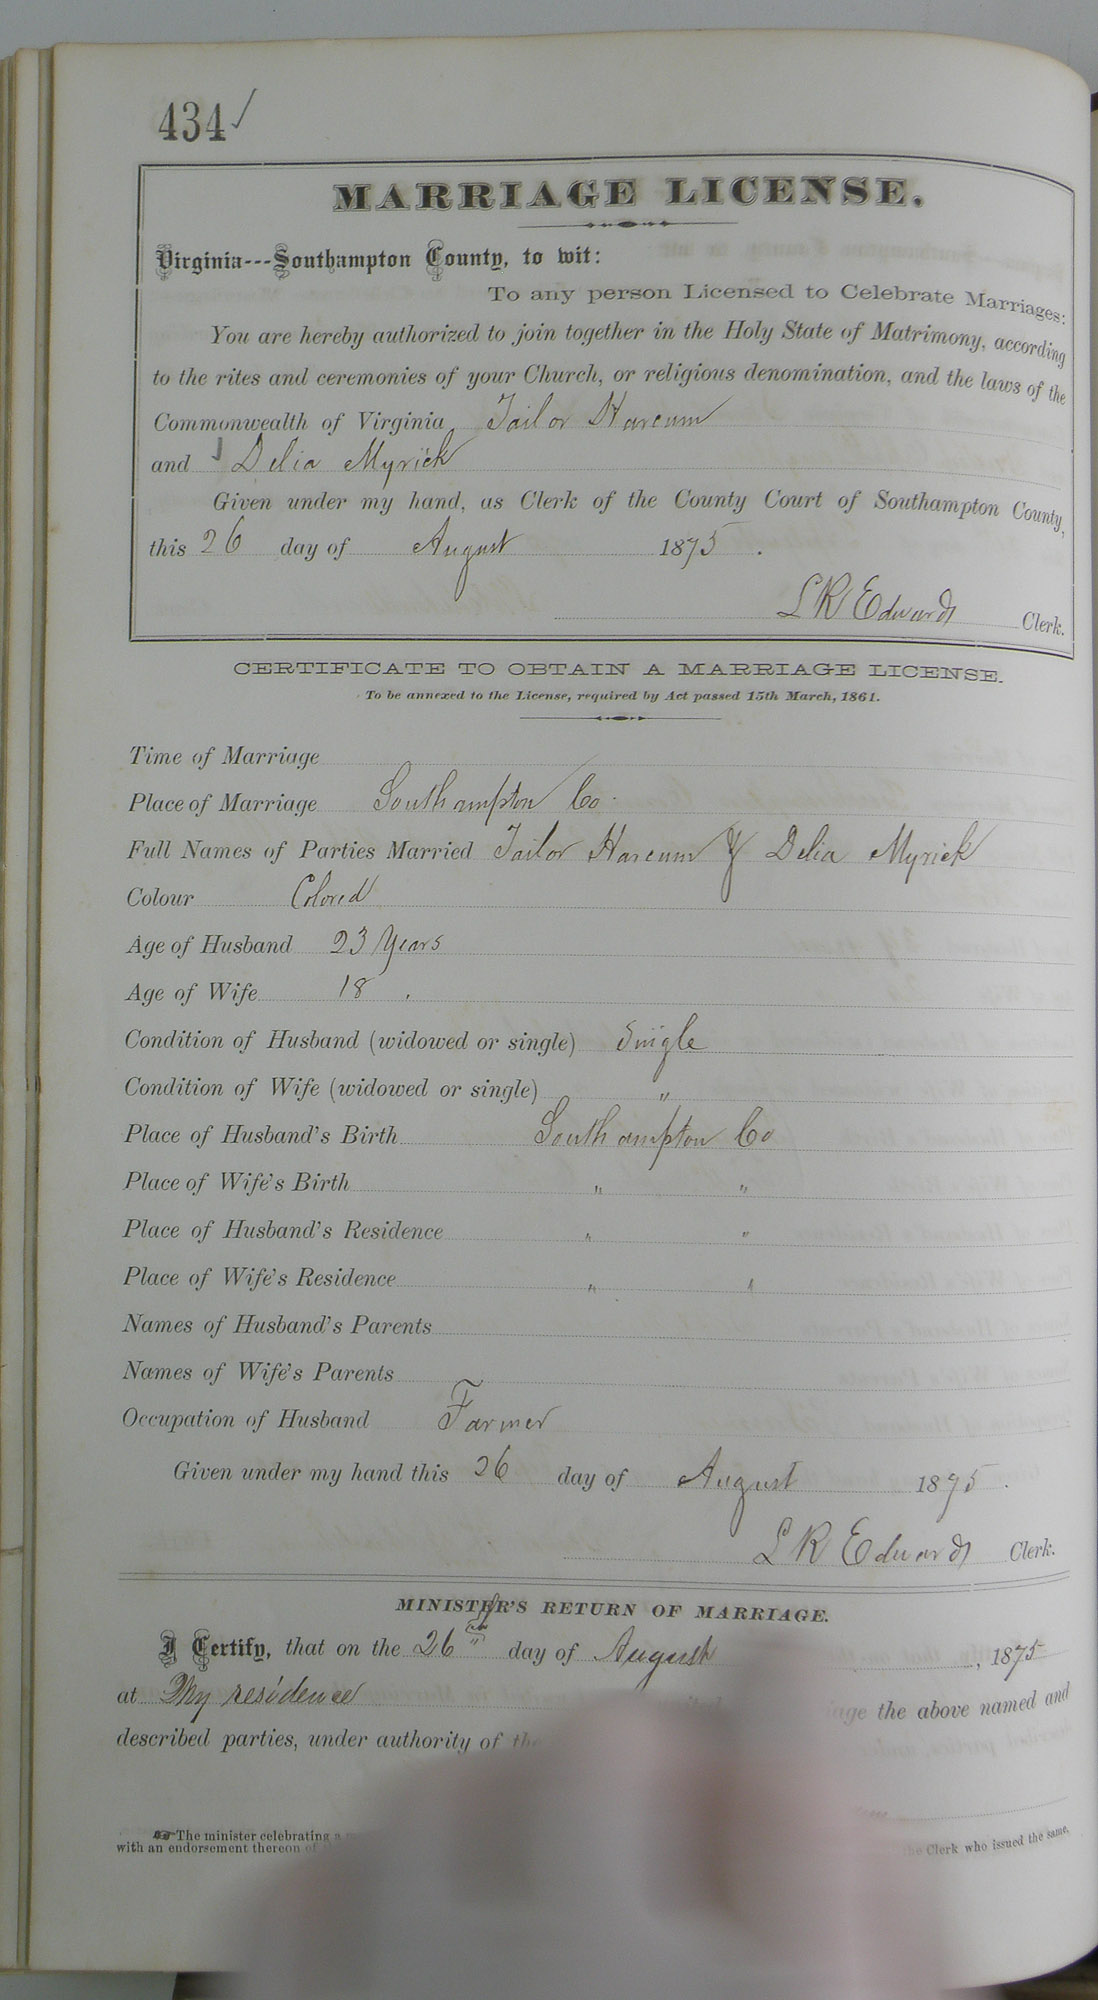 434 ✓
MARRIAGE LICENSE.
Virginia---Southampton County, to wit:
To any person Licensed to Celebrate Marriages:
You are hereby authorized to join together in the Holy State of Matrimony, according
to the rites and ceremonies of your Church, or religious denomination, and the laws of the
Commonwealth of Virginia Tailor Harcum
and Delia Myrick
Given under my hand, as Clerk of the County Court of Southampton County,
this 26 day of August 1875.
L R Edwards Clerk.
CERTIFICATE TO OBTAIN A MARRIAGE LICENSE.
To be annexed to the License, required by Act passed 15th March, 1861.
Time of Marriage
Place of Marriage Southampton Co.
Full Names of Parties Married Tailor Harcum & Delia Myrick
Colour Colored
Age of Husband 23 Years
Age of Wife 18 .
Condition of Husband (widowed or single) Single
Condition of Wife (widowed or single) "
Place of Husband's Birth Southampton Co
Place of Wife's Birth " "
Place of Husband's Residence " "
Place of Wife's Residence " "
Names of Husband's Parents
Names of Wife's Parents
Occupation of Husband Farmer
Given under my hand this 26 day of August 1875.
L R Edwards Clerk.
MINISTER'S RETURN OF MARRIAGE.
I Certify, that on the 26th day of August, 1875
at My residence the above named and
described parties, under authority of the
☞ The minister celebrating a
with an endorsement thereon of the Clerk who issued the same.